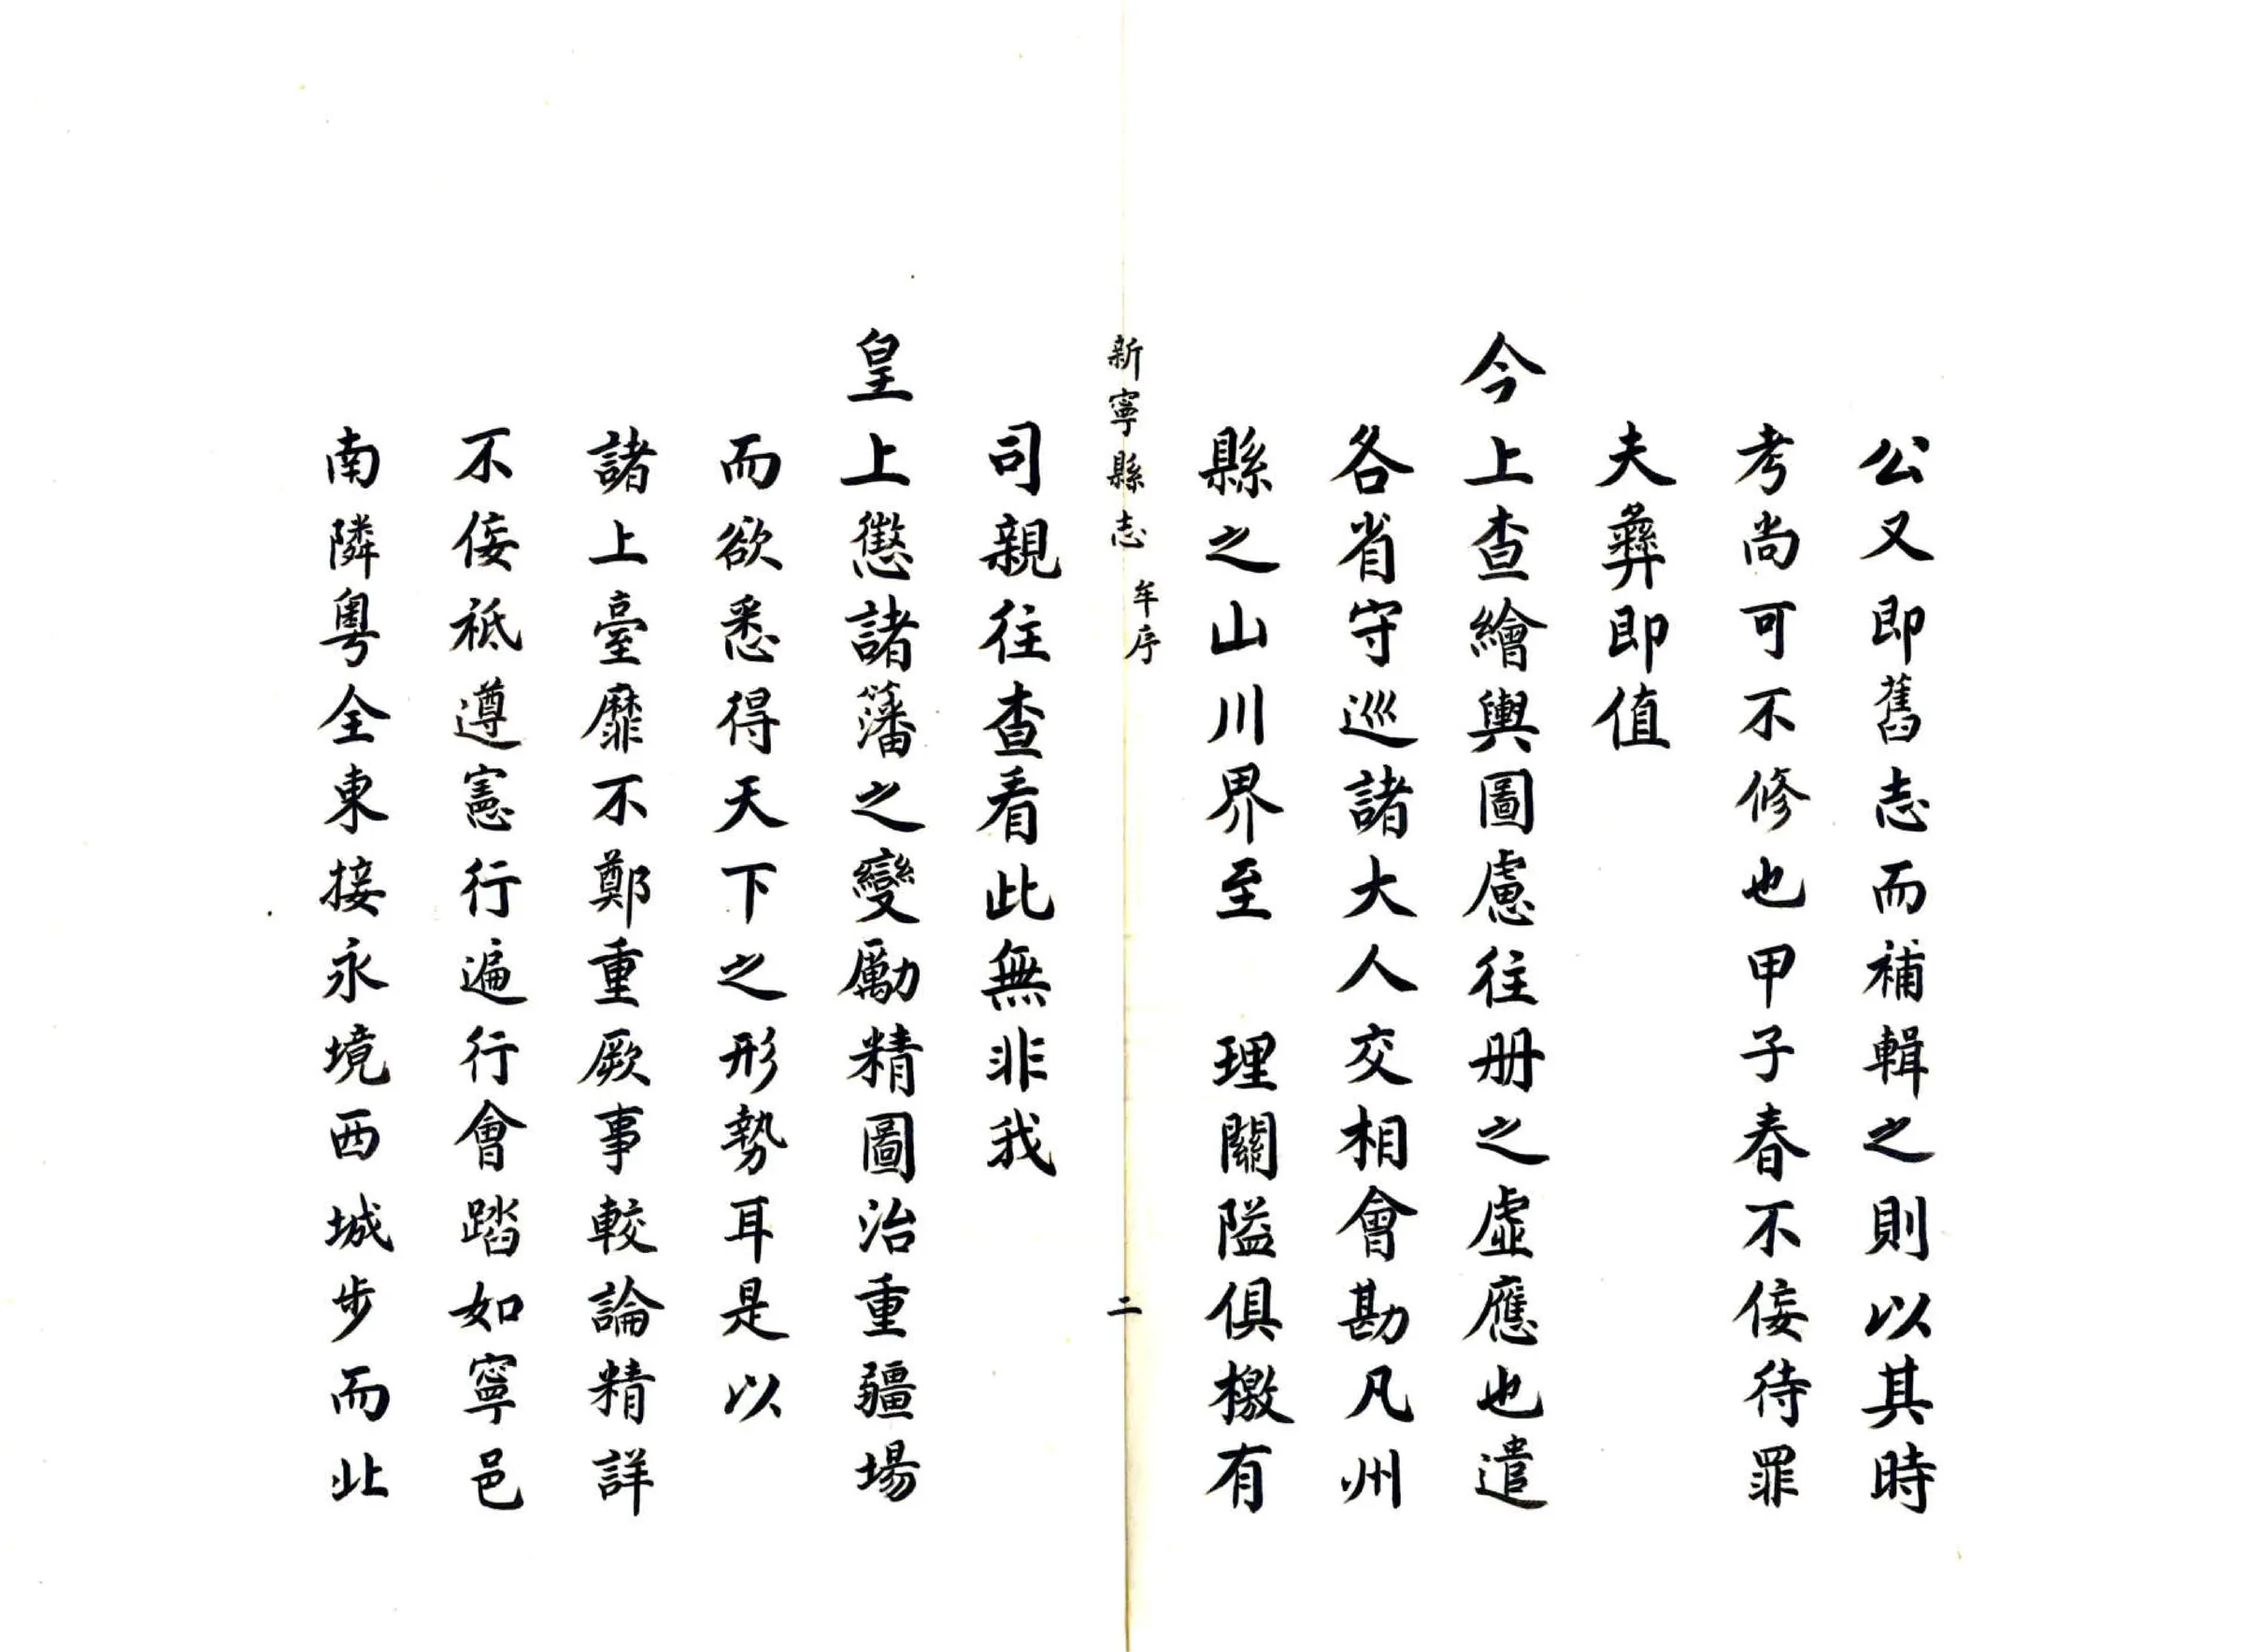 公又即舊志而補輯之則以其時
考尚可不修也甲子春不佞待罪
夫彝即值
今上查繪輿圖慮往册之虛應也遣
各省守巡諸大人交相會勘凡州
縣之山川界至 理關隘俱檄有
新寧縣志 牟序 二
司親往查看此無非我
皇上懲諸藩之變勵精圖治重疆場
而欲悉得天下之形勢耳是以
諸上臺靡不鄭重厥事較論精詳
不佞祗遵憲行遍行會踏如寧邑
南隣粵全東接永境西城步而北